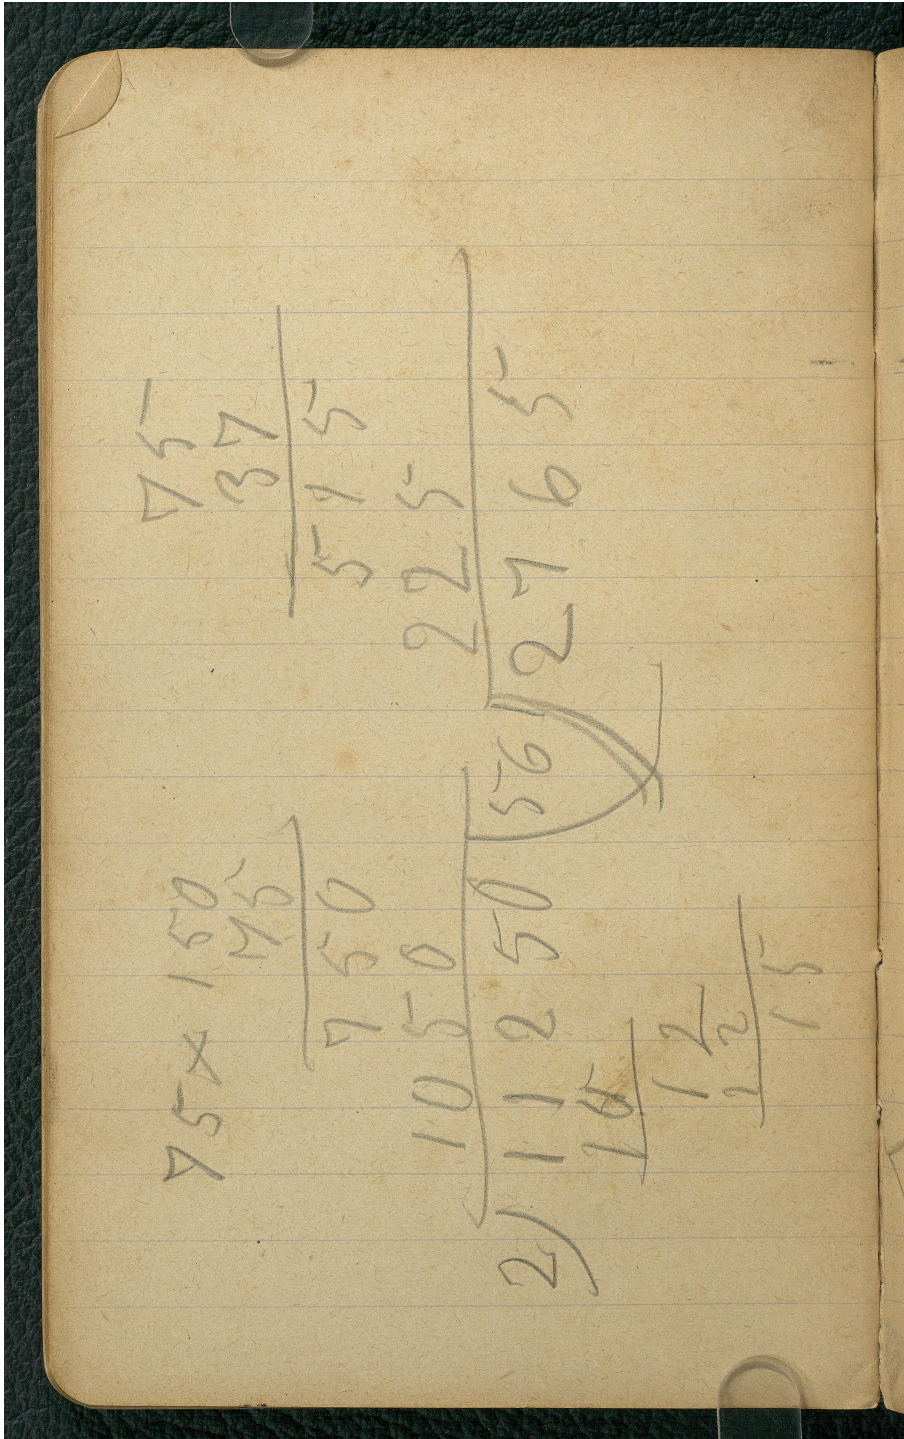 75 x 150
75
750
1050
2) 11250 (56
12
12
15
75
37
515
225
2765